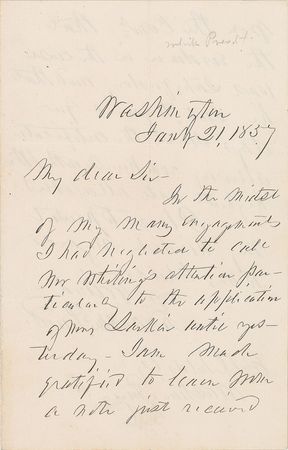 Washington
Jany 21, 1857
My dear Sir –
In the midst
of my many engagements
I had neglected to call
Mr Whiting's attention par-
ticularly to the application
of Mrs until yes-
terday – I am much
gratified to learn from
a note just received